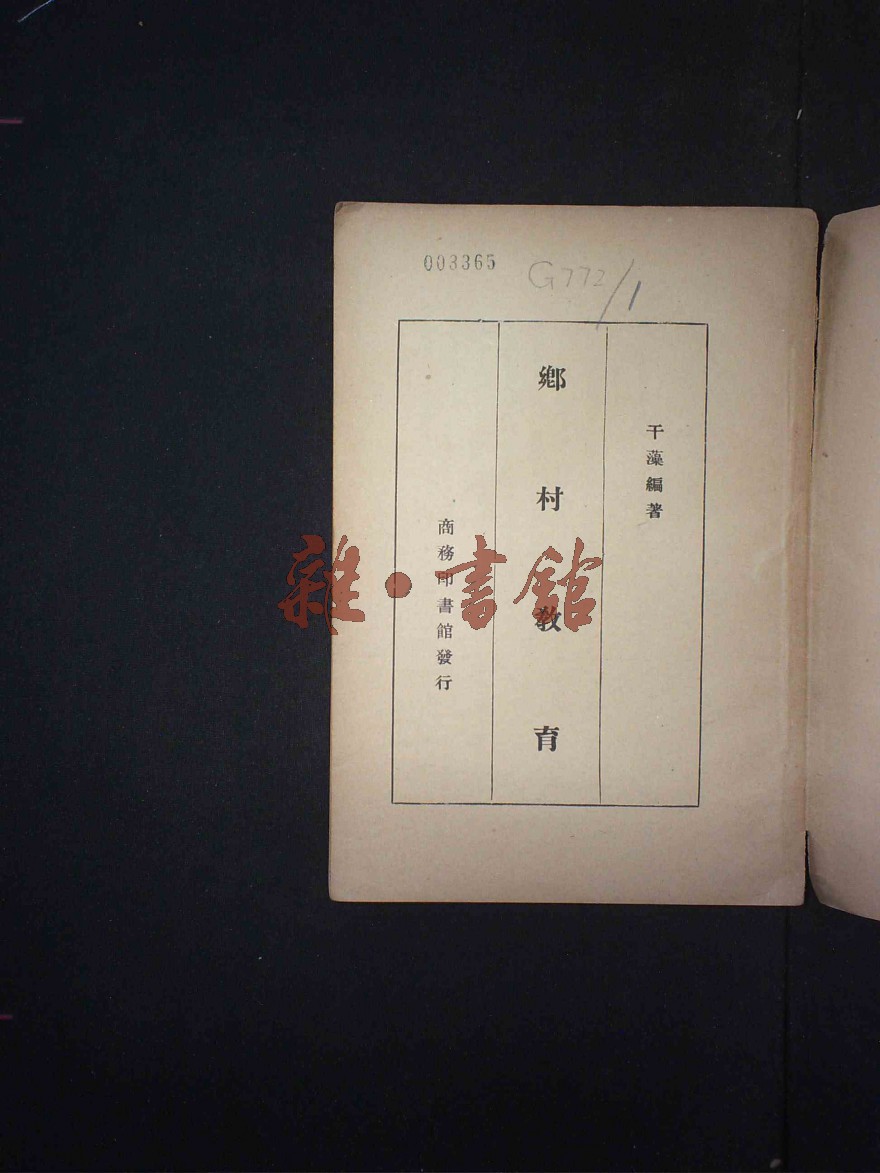 003365
G772/1
干藻編著
鄉村教育
商務印書館發行
雜·書館